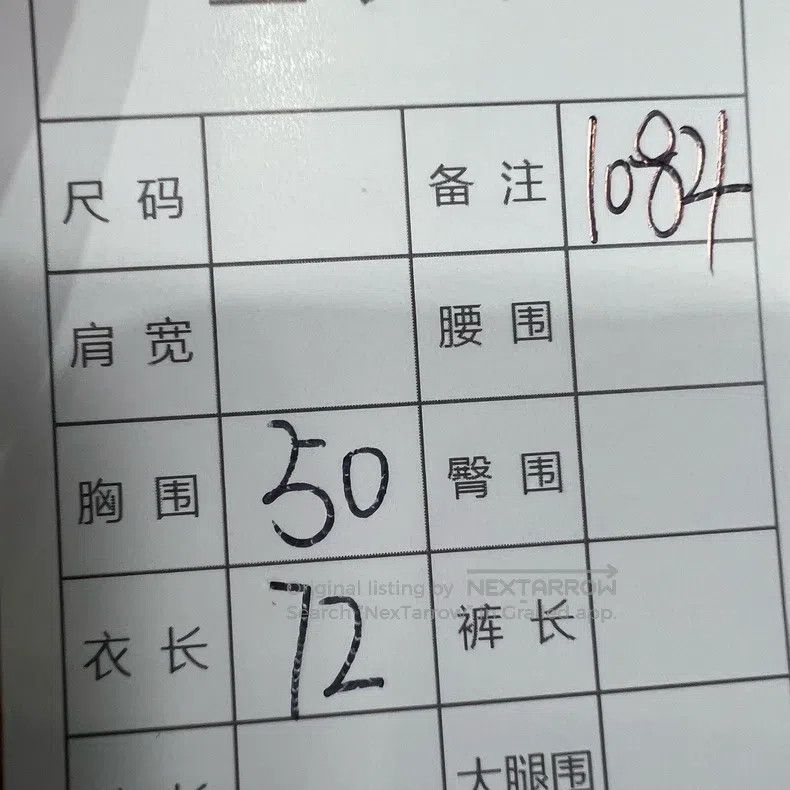 尺码 备注 1084
肩宽 腰围
胸围 50 臀围
衣长 72 裤长
Original listing by NEXTARROW
Search "NexTarrow" Grailed app.
大腿围